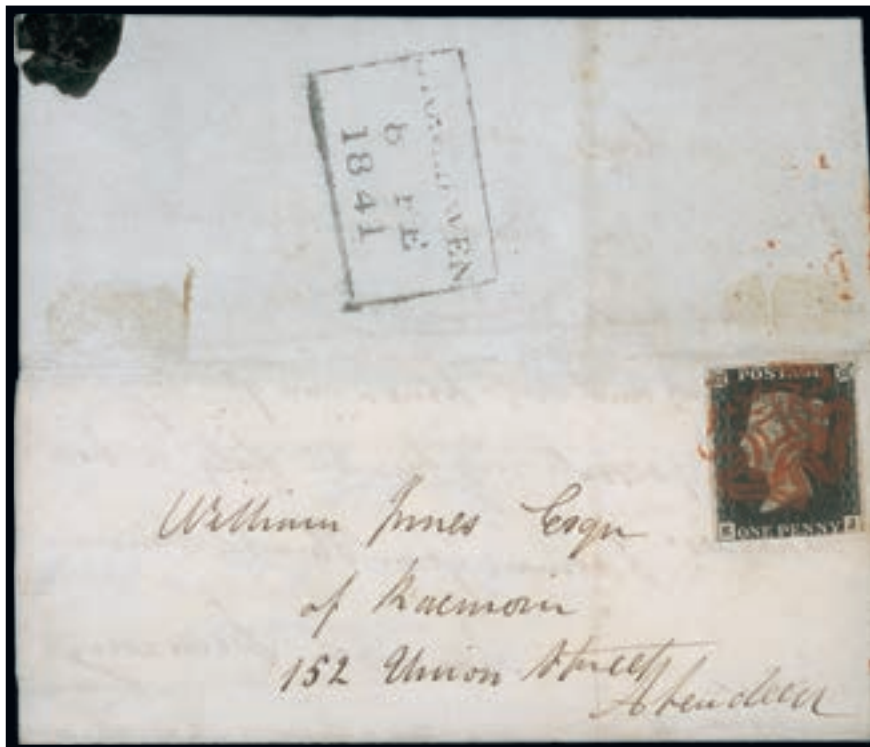 6 FE
1841
POSTAGE
ONE PENNY
William Innes Esqr
of Raemoir
152 Union Street
Aberdeen